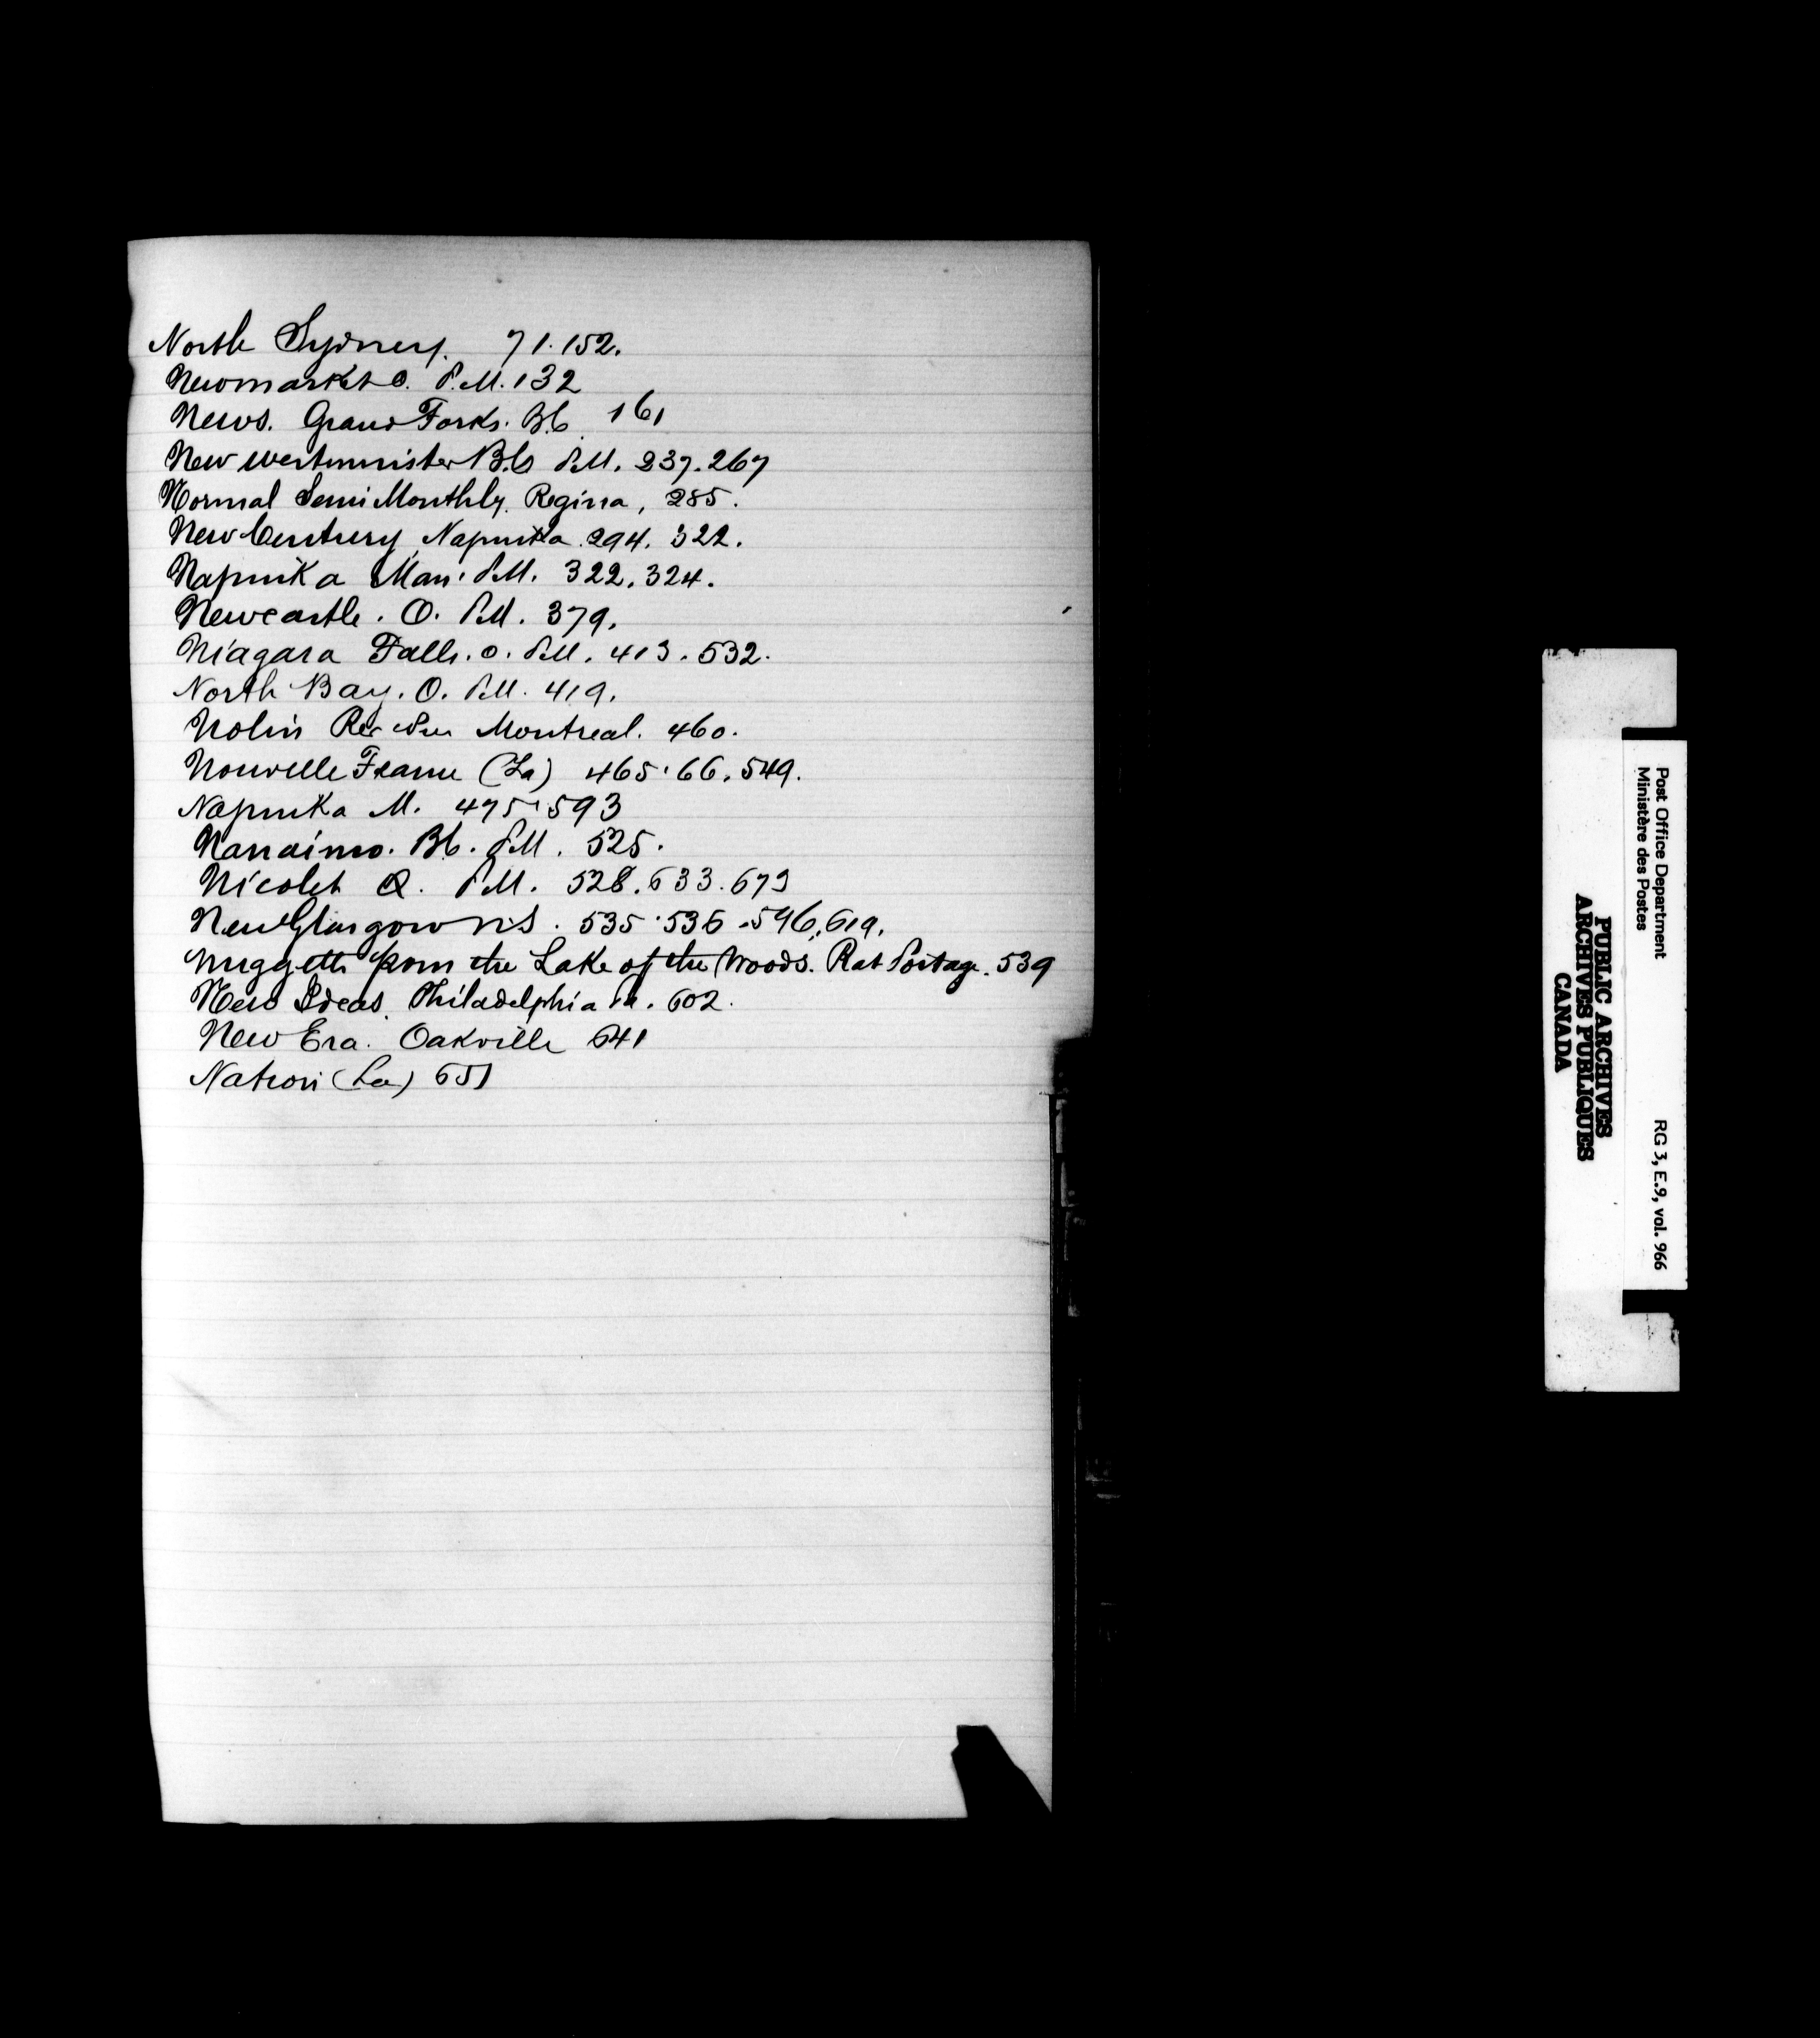 North Sydney. 71.152.
Newmarket O. P.M. 132
News. Grand Forks. B.C. 161
New Westminister B.C. P.M. 237.267
Normal Semi Monthly. Regina, 285.
New Century, Napinka. 294. 322.
Napinka Man. P.M. 322.324.
Newcastle. O. P.M. 379.
Niagara Falls. O. P.M. 413. 532.
North Bay. O. P.M. 419.
Nolin Rev Montreal. 460.
Nouvelle France (La) 465.66.549.
Napinka M. 475.593
Nanaimo. B.C. P.M. 525.
Nicolet Q. P.M. 528.633.673
New Glasgow N.S. 535.536.596.619.
Nuggetts from the Lake of the Woods. Rat Portage. 539
New Ideas, Philadelphia Pa. 602.
New Era. Oakville 641
Nation (La) 651
Post Office Department
Ministère des Postes
RG 3, E.9, vol. 966
PUBLIC ARCHIVES
ARCHIVES PUBLIQUES
CANADA